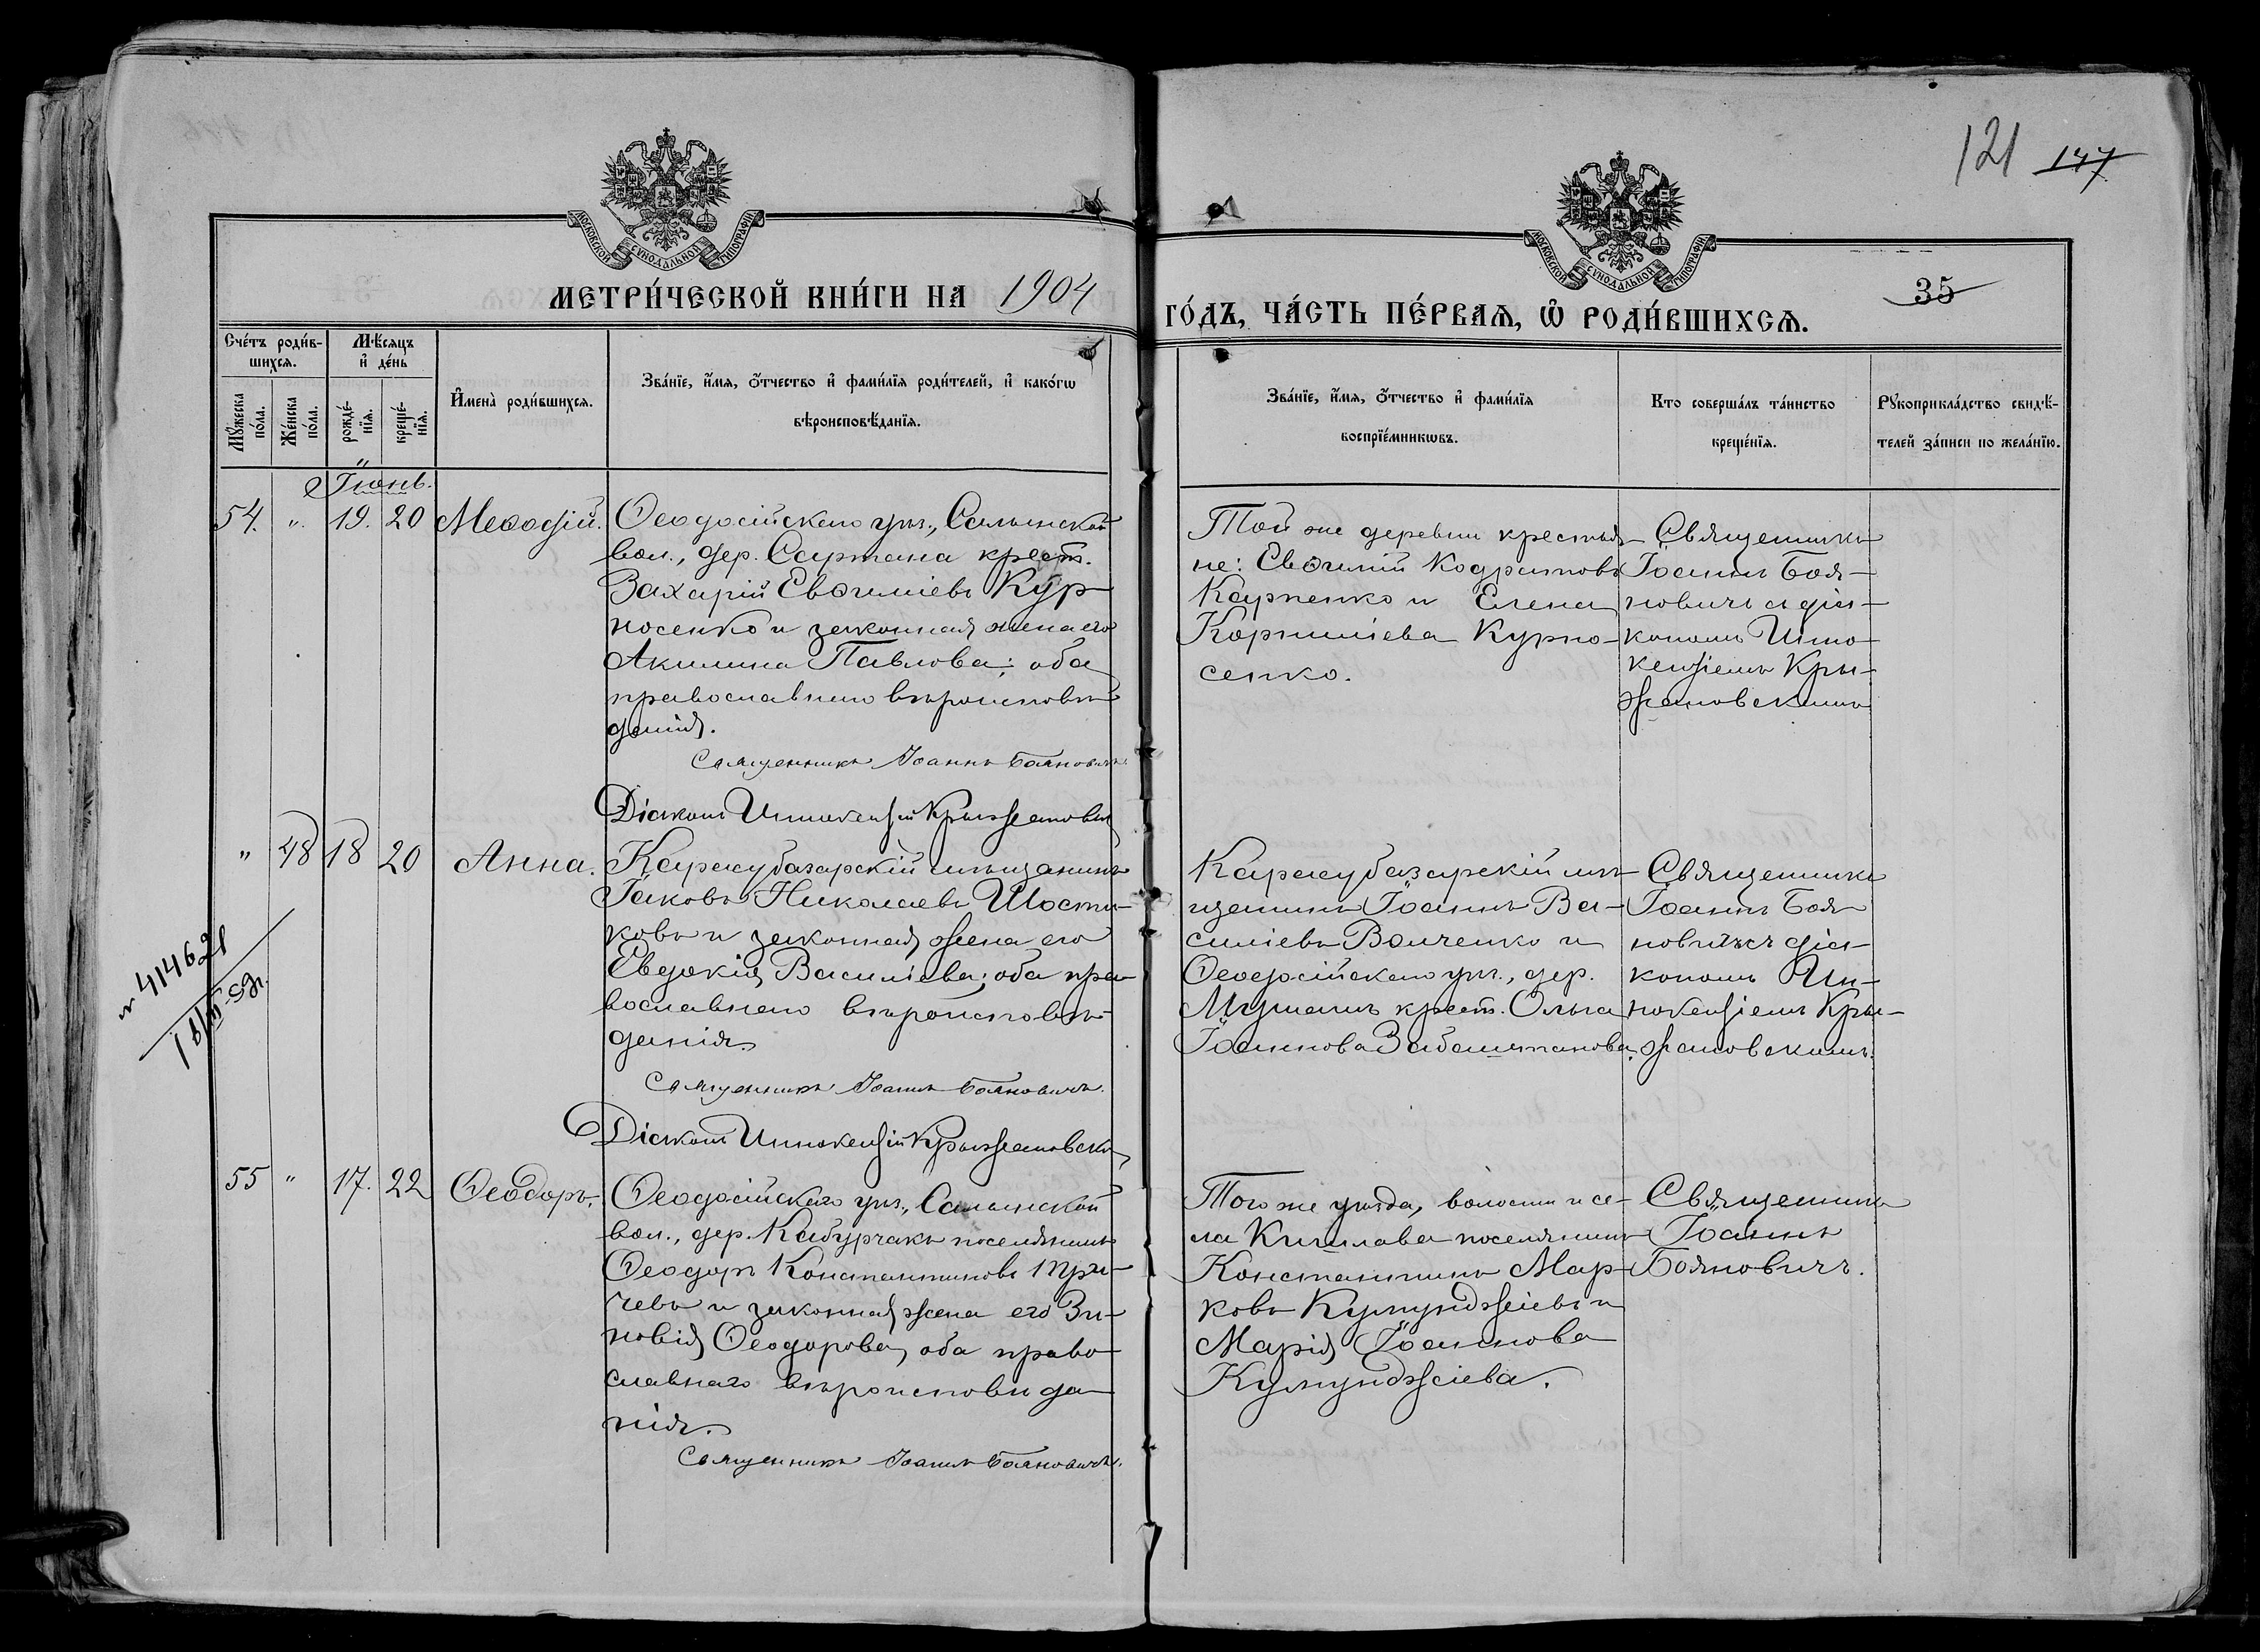 121 147
МОСКОВСКОЙ СУНОДАЛЬНОЙ ТИПОГРАФІИ
МОСКОВСКОЙ СУНОДАЛЬНОЙ ТИПОГРАФІИ
35
МЕТРИ́ЧЕСКОЙ КНИ́ГИ НА 1904
ГО́ДЪ, ЧА́СТЬ ПЕ́РВАѦ, Ѽ РОДИ́ВШИХСѦ.
Сче́тъ роди́в-
шихсѧ.
Мꙋ́жеска по́ла.
Же́нска по́ла.
Мѣ́сѧцъ
и҆ де́нь
рожде́-
нїѧ.
креще́-
нїѧ.
И҆мена̀ роди́вшихсѧ.
Зва́нїе, и҆́мѧ, ѻ҆́тчество и҆ фами́лїѧ роди́телей, и҆ како́гѡ
вѣроисповѣ́данїѧ.
Зва́нїе, и҆́мѧ, ѻ҆́тчество и҆ фами́лїѧ
воспрїе́мникѡвъ.
Кто соверша́лъ та́инство
креще́нїѧ.
Рꙋкоприкла́дство свидѣ́-
телей за́писи по жела́нїю.
Іюнь.
54. „ 19. 20 Меѳодій.
Ѳеодосійскаго уѣз., Салынской
вол., дер. Сартана крест.
Захарій Евѳиміевъ Кур-
носенко и законная жена его
Акилина Павлова; оба
православнаго вѣроисповѣ-
данія.
Священникъ Іоаннъ Бояновичъ.
Діаконъ Иннокентій Крыжановскій
Той же деревни крестья-
не: Евѳимій Кодратовъ
Карпенко и Елена
Корниліева Курно-
сенко.
Священникъ
Іоаннъ Боя-
новичъ съ діа-
кономъ Инно-
кентіемъ Кры-
жановскимъ
„ 48 18 20 Анна.
Карасубазарскій мѣщанинъ
Іаковъ Николаевъ Шости-
ковъ и законная жена его
Евдокія Васильева; оба пра-
вославнаго вѣроисповѣ-
данія.
Священникъ Іоаннъ Бояновичъ.
Діаконъ Иннокентій Крыжановскій
Карасубазарскій мѣ-
щанинъ Іоаннъ Ва-
силіевъ Волченко и
Ѳеодосійскаго уѣз., дер.
крест. Ольга
Іоаннова Забаштанова.
Священникъ
Іоаннъ Боя-
новичъ съ діа-
кономъ Ин-
нокентіемъ Кры-
жановскимъ.
№ 414621
55 „ 17. 22 Ѳеодоръ.
Ѳеодосійскаго уѣз., Салынской
вол., дер. Кабурчакъ поселянинъ
Ѳеодоръ Константиновъ
и законная жена его Зи-
новія Ѳеодорова, оба право-
славнаго вѣроисповѣда-
нія.
Священникъ Іоаннъ Бояновичъ.
Того же уѣзда, волости и се-
ла поселянинъ
Константинъ Мар-
ковъ Кумунджіевъ и
Марія Іоаннова
Кумунджіева.
Священникъ
Іоаннъ
Бояновичъ.